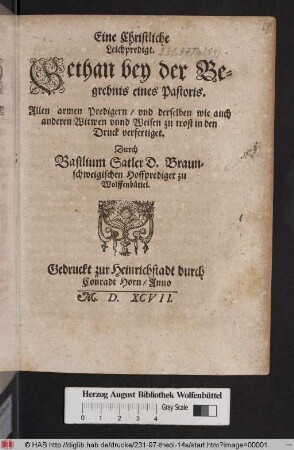 Eine Christliche
Leichpredigt.
Gethan bey der Be-
grebnis eines Pastoris.
Allen armen Predigern / vnd derselben wie auch
anderen Witwen vnnd Weisen zu trost in den
Druck verfertiget.
Durch
Basilium Satler D. Braun-
schweigischen Hoffprediger zu
Wolffenbüttel.
Gedruckt zur Heinrichstadt durch
Conradt Horn / Anno
M. D. XCVII.
Herzog August Bibliothek Wolfenbüttel
Gray Scale
© HAB http://diglib.hab.de/drucke/231-97-theol-14s/start.htm?image=00001